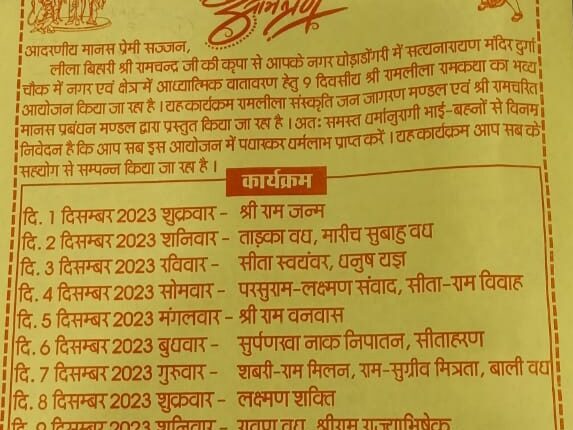 आमंत्रण
आदरणीय मानस प्रेमी सज्जन,
लीला बिहारी श्री रामचन्द्र जी की कृपा से आपके नगर घोड़ाडोंगरी में सत्यनारायण मंदिर दुर्गा
चौक में नगर एवं क्षेत्र में आध्यात्मिक वातावरण हेतु 9 दिवसीय श्री रामलीला रामकथा का भव्य
आयोजन किया जा रहा है । यह कार्यक्रम रामलीला संस्कृति जन जागरण मण्डल एवं श्री रामचरित
मानस प्रबंधन मण्डल द्वारा प्रस्तुत किया जा रहा है । अतः समस्त धर्मानुरागी भाई-बहनों से विनम्र
निवेदन है कि आप सब इस आयोजन में पधारकर धर्मलाभ प्राप्त करें । यह कार्यक्रम आप सब के
सहयोग से सम्पन्न किया जा रहा है ।
कार्यक्रम
दि. 1 दिसम्बर 2023 शुक्रवार - श्री राम जन्म
दि. 2 दिसम्बर 2023 शनिवार - ताड़का वध, मारीच सुबाहु वध
दि. 3 दिसम्बर 2023 रविवार - सीता स्वयंवर, धनुष यज्ञ
दि. 4 दिसम्बर 2023 सोमवार - परसुराम-लक्ष्मण संवाद, सीता-राम विवाह
दि. 5 दिसम्बर 2023 मंगलवार - श्री राम वनवास
दि. 6 दिसम्बर 2023 बुधवार - सुर्पणखा नाक निपातन, सीताहरण
दि. 7 दिसम्बर 2023 गुरुवार - शबरी-राम मिलन, राम-सुग्रीव मित्रता, बाली वध
दि. 8 दिसम्बर 2023 शुक्रवार - लक्ष्मण शक्ति
दि. 9 दिसम्बर 2023 शनिवार - रावण वध, श्रीराम राज्याभिषेक